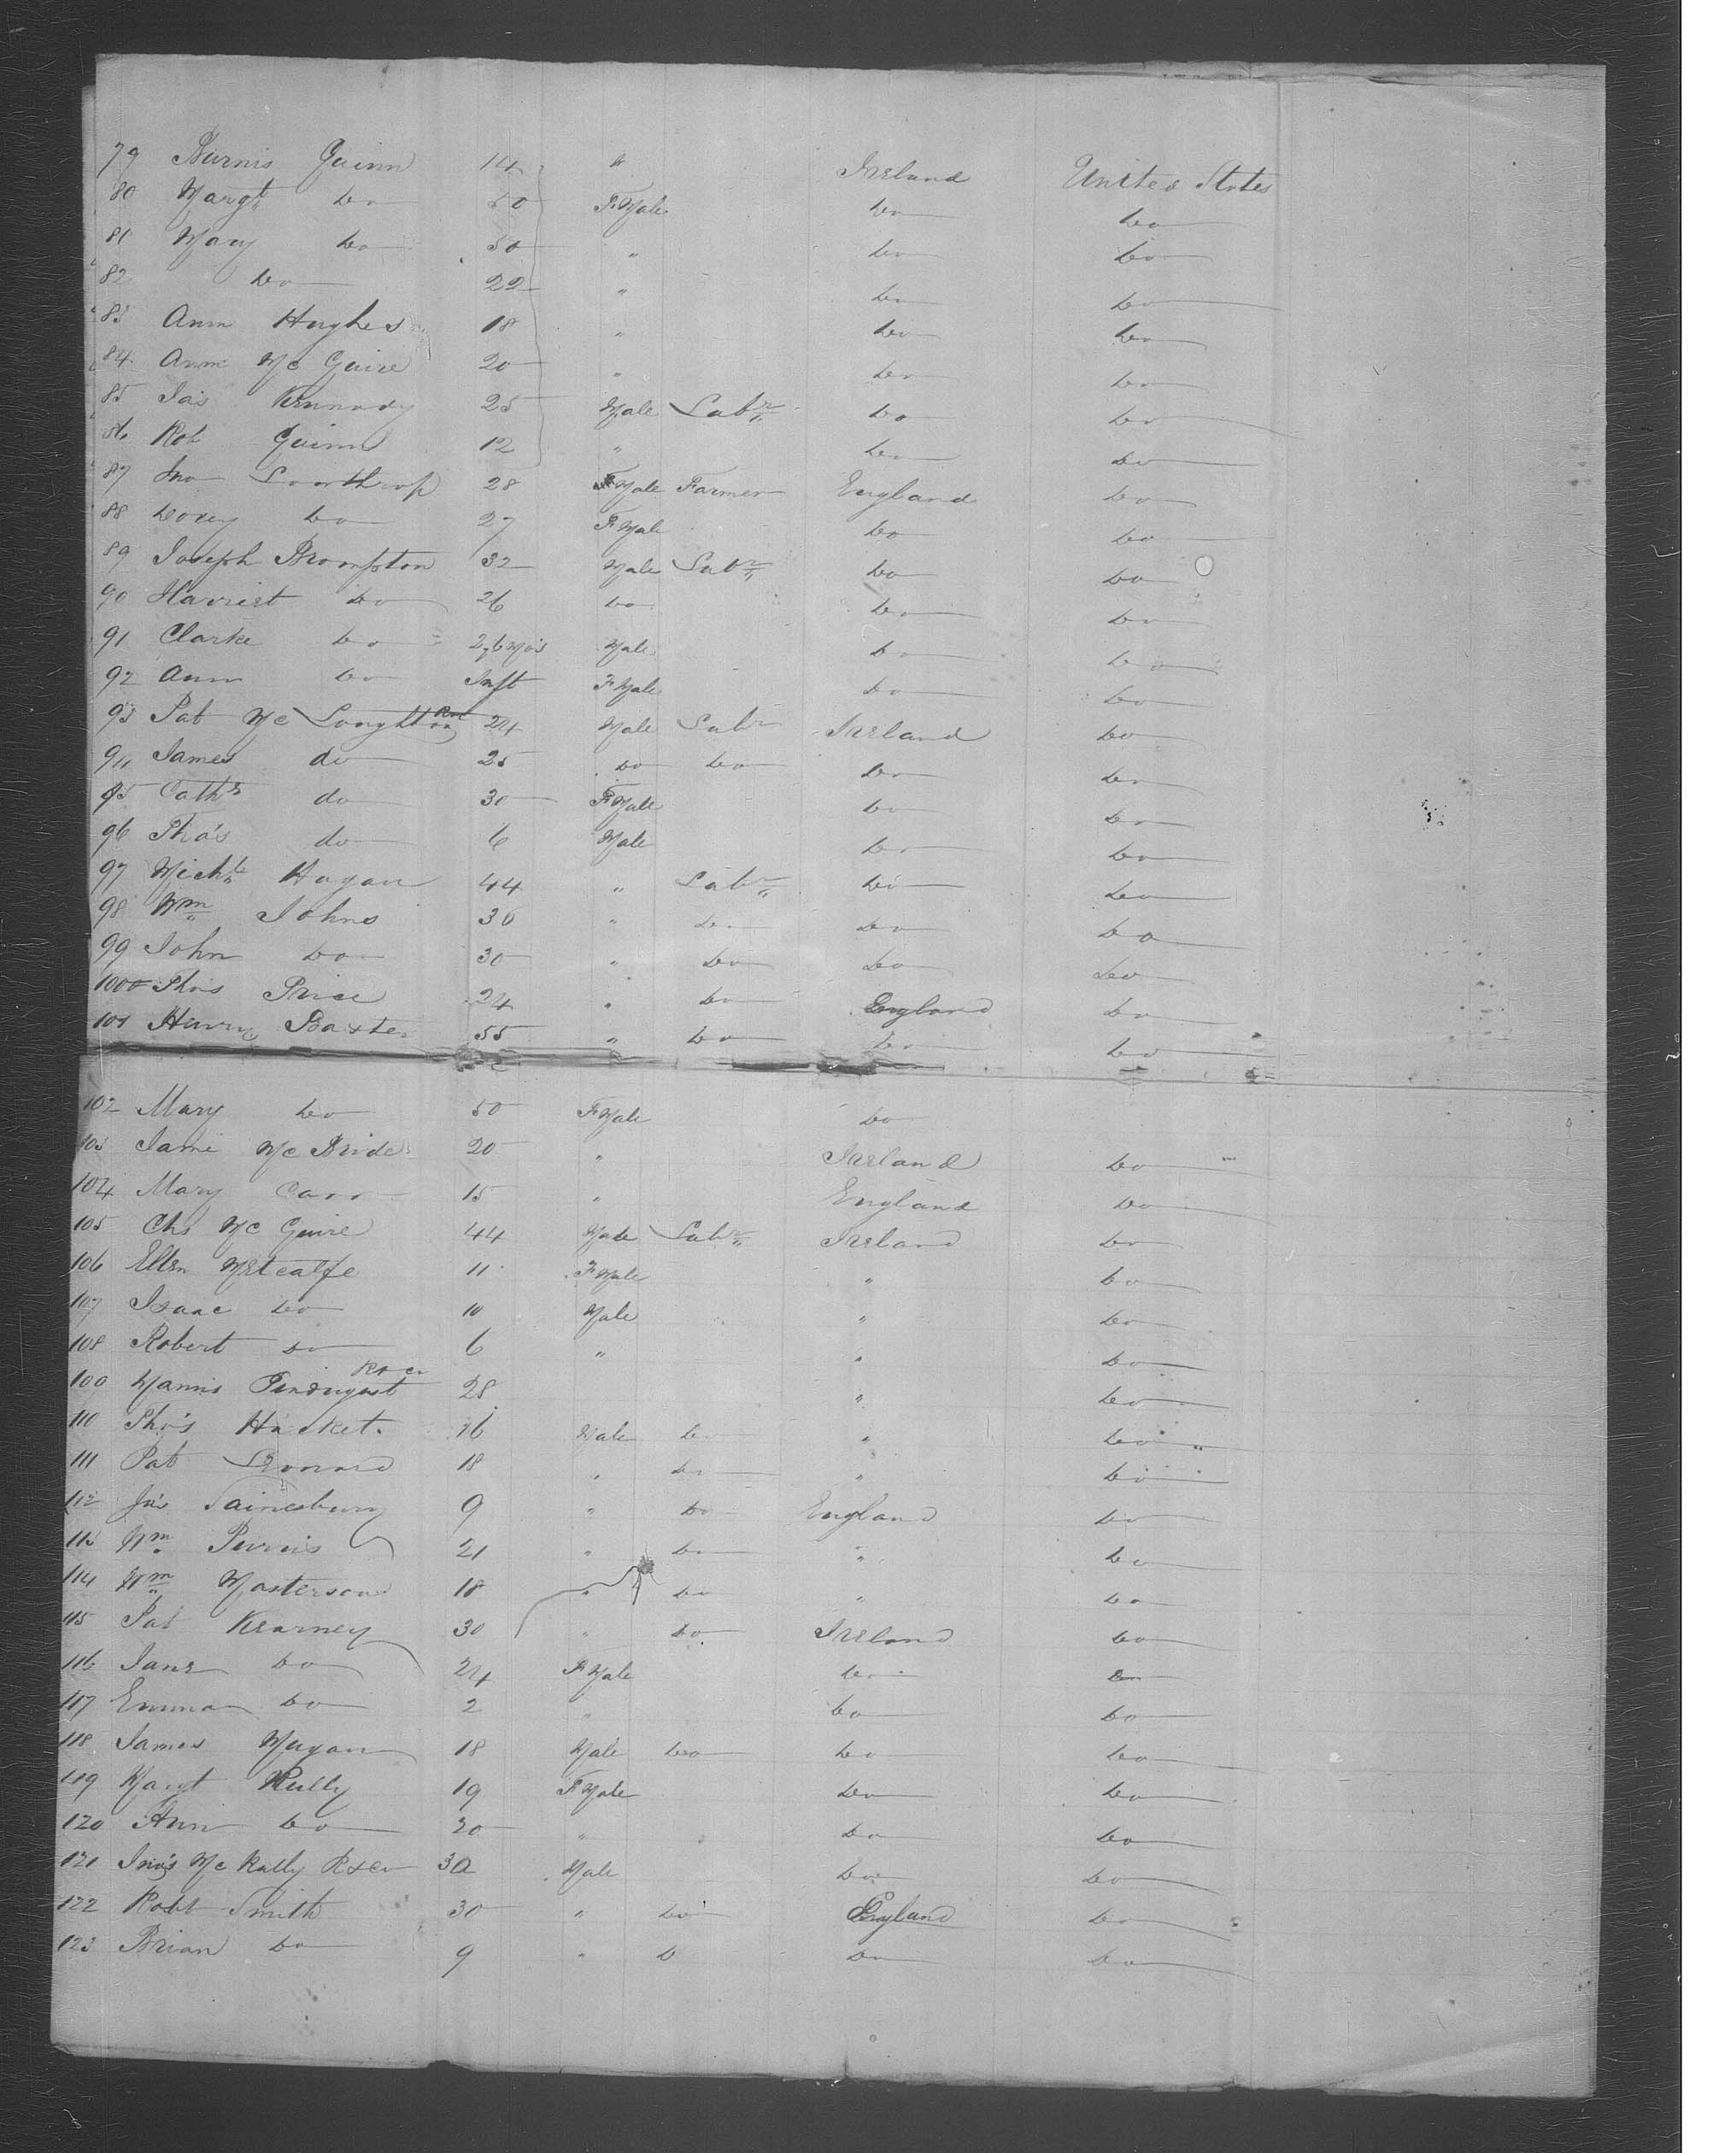 79 Burnis Quinn 14 " Ireland United States
80 Margt do 50 FMale do do
81 Mary do 50 " do do
82 do 22 " do do
83 Ann Hughes 18 " do do
84 Ann McGuire 20 " do do
85 Jas Kennady 25 Male Labr do do
86 Rob Quinn 12 " do do
87 Jno Lowthrop 28 Male Farmer England do
88 do 27 FMale do do
89 Joseph Brompton 32 Male Labr do do
90 Harriet do 26 do do do
91 Clarke do 2,6 Mo's Male do do
92 Ann do Inft FMale do do
93 Pat Mc 24 Male Labr Ireland do
94 James do 25 do do do do
95 Cathr do 30 FMale do do
96 Tho's do 6 Male do do
97 Michl Hagan 44 " Labr do do
98 Wm Johns 30 " do do do
99 John do 30 " do do do
100 Tho's Price 24 " do England do
101 Henry Baxter 55 " do do do
102 Mary do 50 FMale do
103 Jane McBride 20 " Ireland do
104 Mary Carr 15 " England do
105 Chs McGuire 44 Male Labr Ireland do
106 Ellen Metcalfe 11 FMale " do
107 Isaac do 10 Male " do
108 Robert do 6 " " do
100 28 " do
110 Tho's Hasket 16 Male do " do
111 Pat Leonard 18 " do " do
112 Jas Sainesbury 9 " do England do
113 Wm Purvis 21 " do " do
114 Wm Masterson 18 " do " do
115 Pat Kearney 30 " do Ireland do
116 Jane do 24 FMale do do
117 Emma do 2 " do do
118 James Magan 18 Male do do do
119 Margt Kelly 19 FMale do do
120 Ann do 20 " do do
121 Mc 30 Male do do
122 Robt Smith 30 " do England do
123 Brian do 9 " D do do